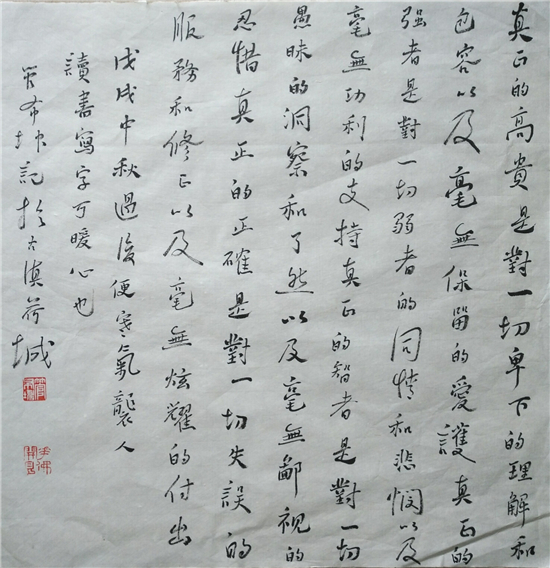 真正的高貴是對一切卑下的理解和
包容以及毫無保留的愛護真正的
强者是對一切弱者的同情和悲憫以及
毫無功利的支持真正的智者是對一切
愚昧的洞察和了然以及毫無鄙視的
忍惜真正的正確是對一切失誤的
服務和修正以及毫無炫耀的付出
戊戌中秋過後便寒氣襲人
讀書寫字可暖心也
記於古滇荷城